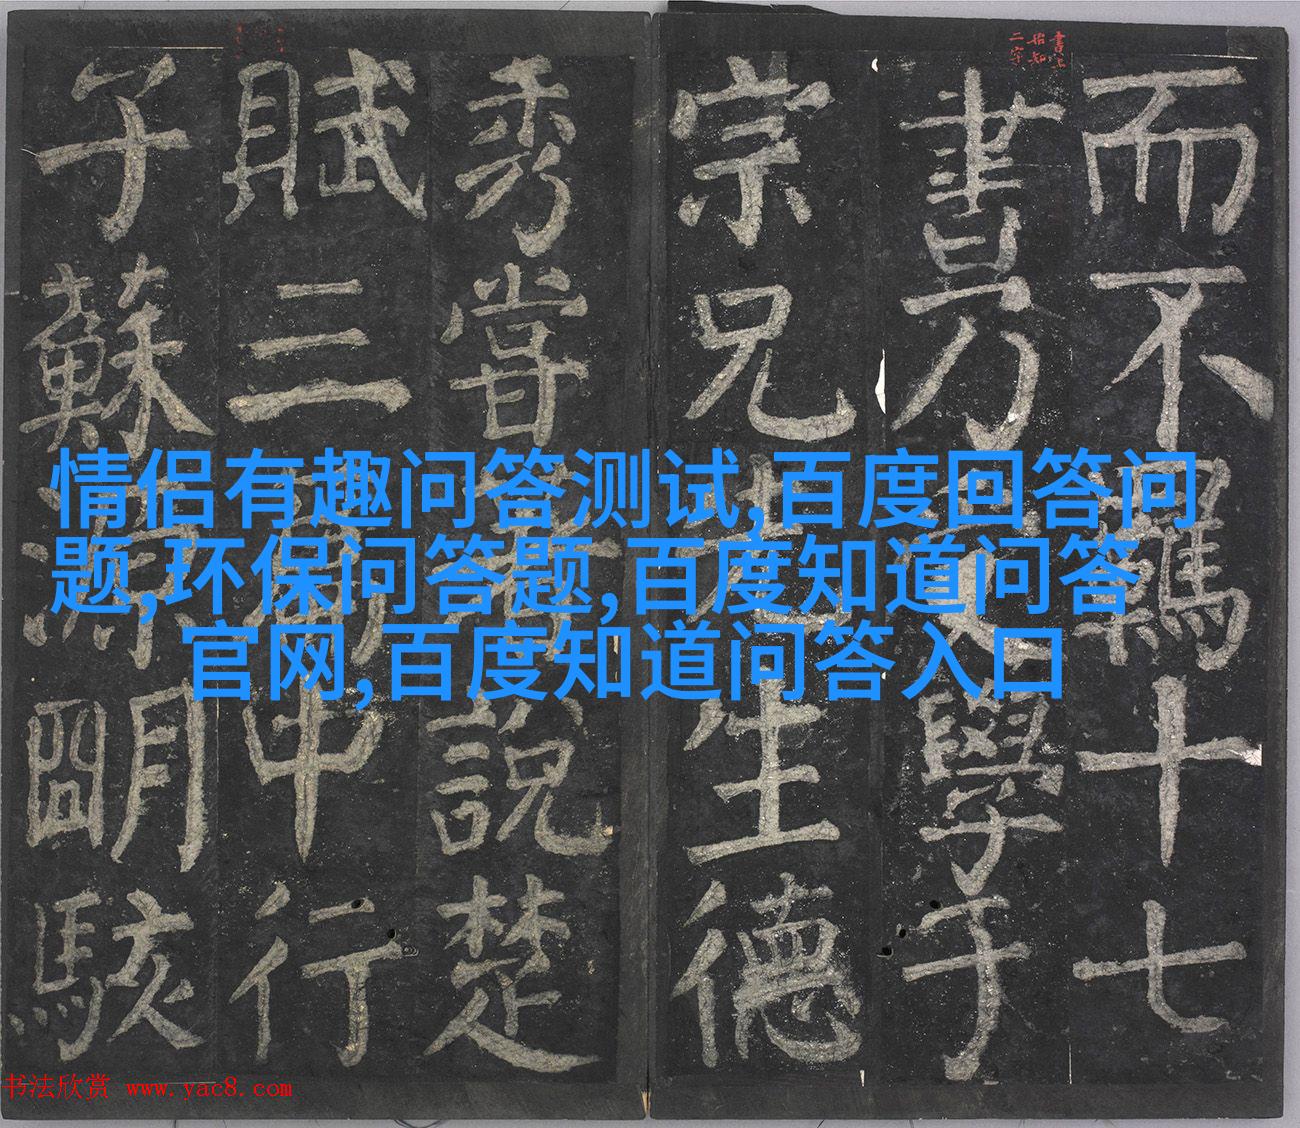 書上
始知
二字
而不羈十七
書乃學于
宗兄先生德
秀嘗著說楚
賦三篇中行
子蘇源明駭
情侣有趣问答测试,百度回答问
题,环保问答题,百度知道问答
官网,百度知道问答入口
书法欣赏 www.yac8.com